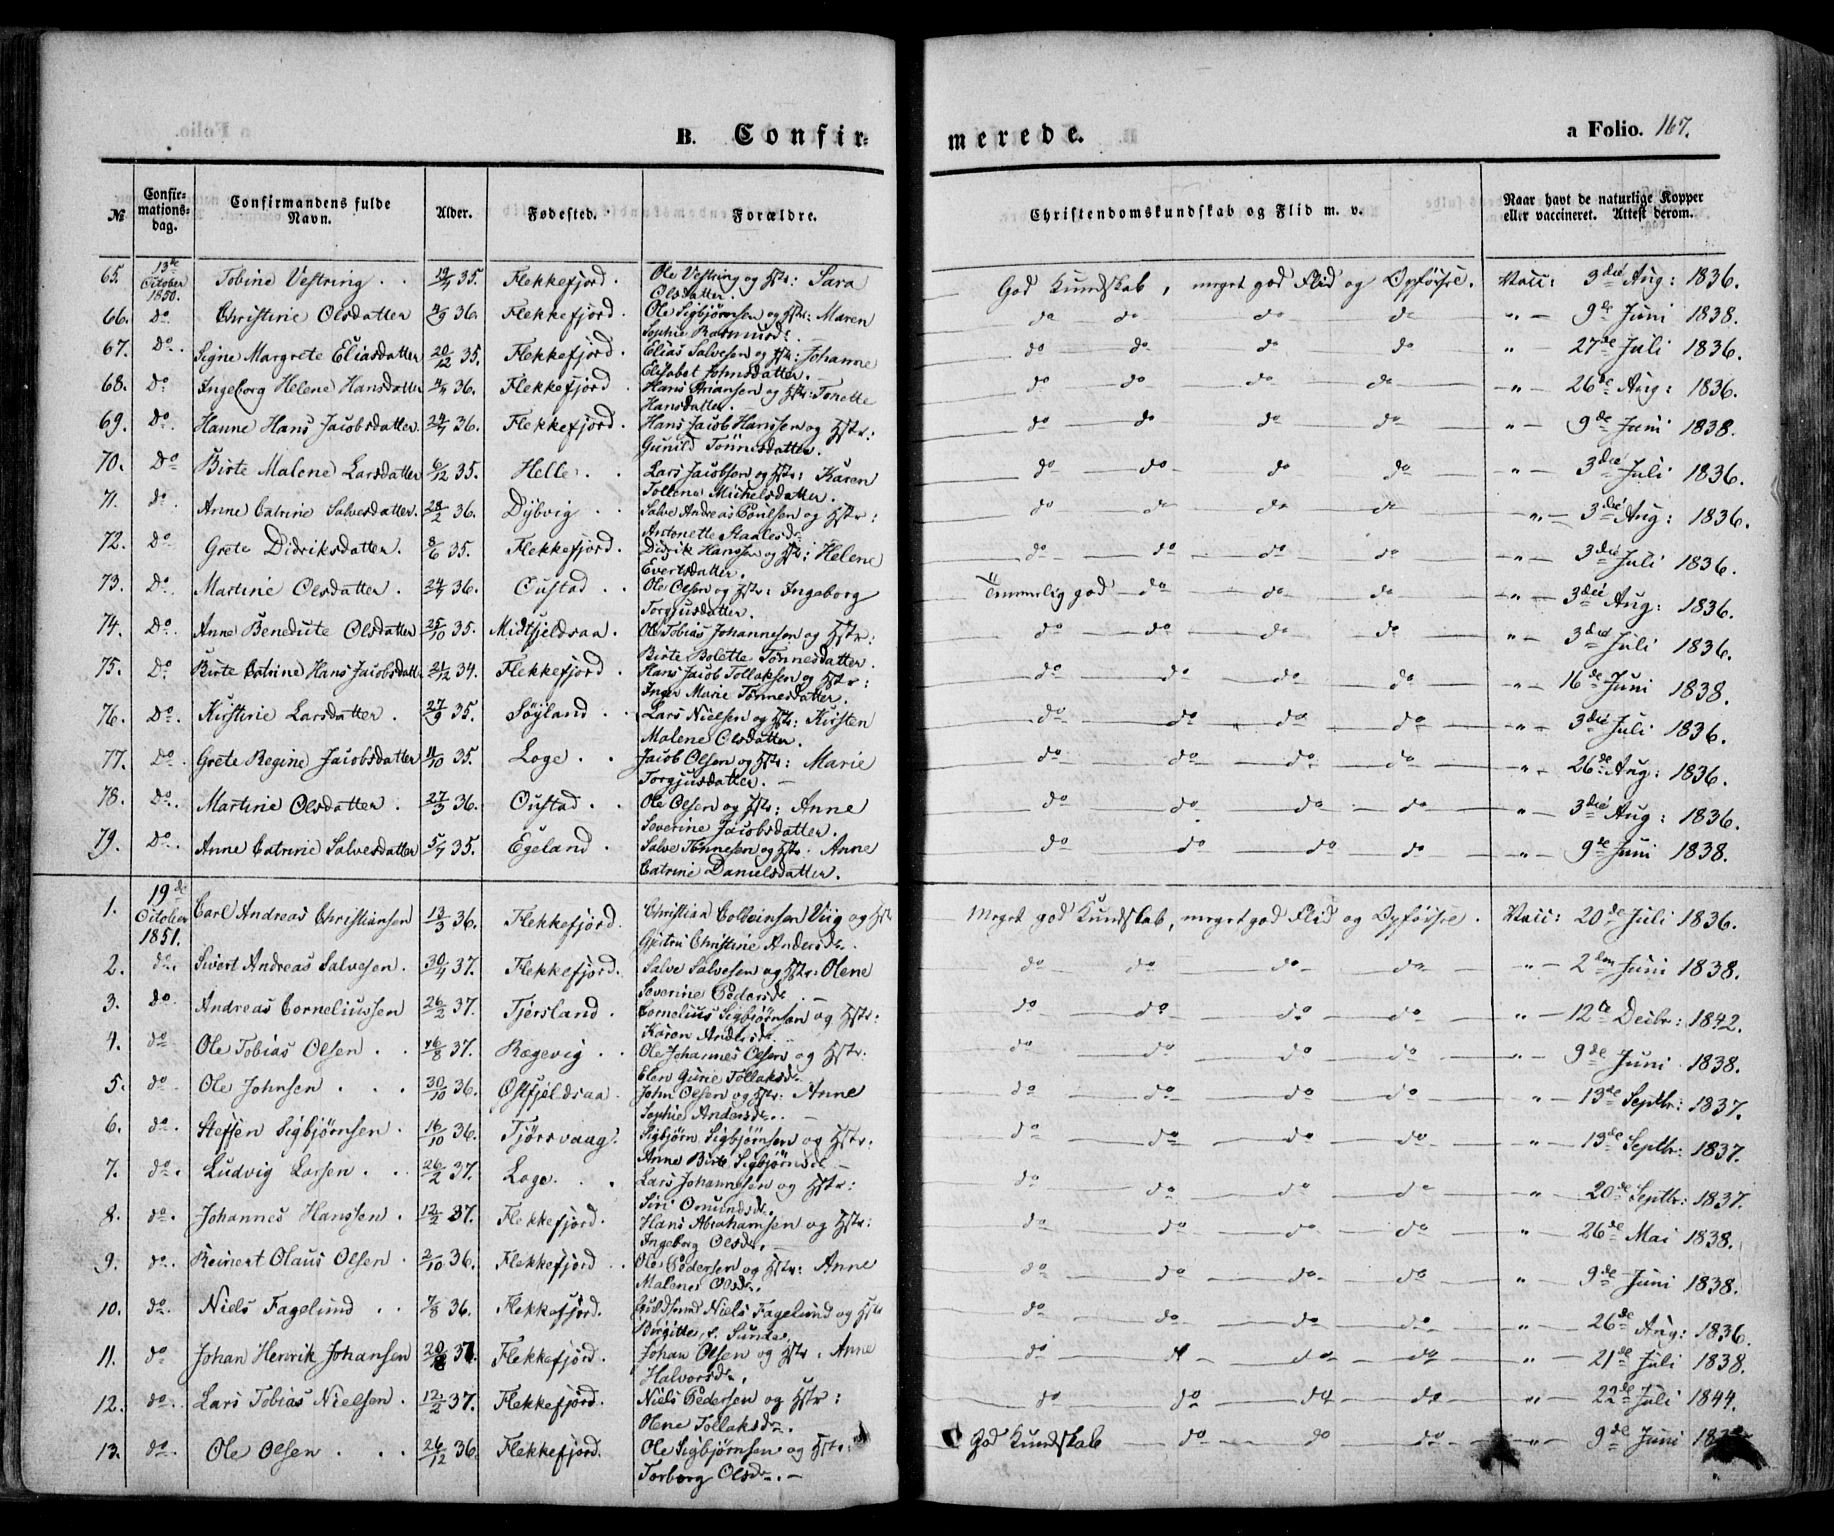 B. Confir-
merede.
a Folio. 167.
№ Confirmations-dag. Confirmandens fulde Navn. Alder. Fødested. Forældre. Christendomskundskab og Flid m. v. Naar havt de naturlige Kopper eller vaccineret. Attest derom.
65. 13de October 1850. Tobine Vestring . . 19/7 35. Flekkefjord. Ole Vestring og Hstr: Sara Olsdatter. God Kundskab, meget god Flid og Opførsel. Vacc: 3die Aug: 1836.
66. Do Christine Olsdatter 4/9 36. Flekkefjord. Ole Sigbjørnsen og Hstr: Maren Sophie Rasmusd. do do do do " 9de Juni 1838.
67. Do. Signe Margrete Eliasdatter 20/12 35. Flekkefjord. Elias Salvesen og Hstr: Johanne Elisabet Johnsdatter. do do do do " 27de Juli 1836.
68. Do Ingeborg Helene Hansdatter 4/7 36. Flekkefjord Hans Ariansen og Hstr: Tonette Hansdatter. do do do do " 26de Aug: 1836.
69. Do. Hanne Hans Jacobsdatter. 24/7 36. Flekkefjord. Hans Jacob Hanssen og Hstr: Gunild Tönnesdatter. do do do do " 9de Juni 1838.
70. Do Birte Malene Larsdatter 6/12 35. Helle. . Lars Jacobsen og Hstr: Karen Tollene Michelsdatter. do do do do " 3die Juli 1836.
71. do. Anne Catrine Salvesdatter. 28/2 36. Dybvig . . Salve Andreas Poulsen og Hstr: Antonette Staalesd. do do do do " 3die Aug: 1836.
72. Do Grete Didriksdatter. 8/6 35. Flekkefjord. Didrik Hanssen og Hstr: Helene Evertsdatter. do do do do " 3die Juli 1836.
73. Do Martine Olsdatter . 24/7 36. Oustad . . Ole Olsen og Hstr: Ingeborg Torgjusdatter. Temmelig god do do do " 3die Aug: 1836.
74. Do. Anne Bendute Olsdatter 25/10 35. Midtfjeldsaa. Ole Tobias Johannesen og Hstr: Birte Bolette Tønnesdatter. do do do do " 3die Juli 1836.
75. Do Birte Catrine Hans Jacobsdatt. 21/12 34. Flekkefjord. Hans Jacob Tollaksen og Hstr: Inger Marie Tønnesdatter. do do do do " 16de Juni 1838.
76. Do. Kirstine Larsdatter . 27/9 35. Söyland . . Lars Nielsen og Hstr: Kirsten Malene Olsdatter. do do do do " 3die Juli 1836.
77. Do. Grete Regine Jacobsdatter 11/10 35. Loge . . Jacob Olsen og Hstr: Marie Torgjusdatter. do do do do " 26de Aug: 1836.
78. Do. Martine Olsdatter . 27/3 36. Oustad . . Ole Olsen og Hstr: Anne Severine Jacobsdatter. do do do do " 3die Aug: 1836.
79. Do. Anne Catrine Salvesdatter 5/7 35. Egeland . Salve Tønnesen og Hstr. Anne Catrine Danielsdatter. do do do do " 9de Juni 1838.
1. 19de October 1851. Carl Andreas Christiansen 13/3 36. Flekkefjord. Christian Christine Andersd. Meget god Kundskab, meget god Flid og Opførsel. Vacc: 20de Juli 1836.
2. do. Sivert Andreas Salvesen. 30/4 37. Flekkefjord. Salve Salvesen og Hstr: Olene Severine Pedersd. do do do do " 2den Juni 1838.
3. do. Andreas Corneliussen 26/2 37. Tjersland . Cornelius Sigbjørnsen og Hstr: Karen Andersd. do do do do " 12te Decbr: 1842.
4. do Ole Tobias Olsen . . 16/8 37. Rægevig . . Ole Johannes Olsen og Hstr: Elen Gurie Tollaksd. do do do do " 9de Juni 1838.
5. do. Ole Johnsen . . . 30/10 36. Østfjeldsaa. John Olsen og Hstr: Anne Sophie Andersd. do do do do " 13de Septbr: 1837.
6. do. Steffen Sigbjørnsen. 16/10 36. Tjørsvaag. Sigbjørn Sigbjørnsen og Hstr: Anne Birte Sigbjørnsd. do do do do " 13de Septbr: 1837.
7. do. Ludvig Larsen . . 26/2 37. Loge. . . Lars Johannesen og Hstr: Siri Omundsd. do do do do " 20de Septbr: 1837.
8. do. Johannes Hanssen . 12/2 37. Flekkefjord. Hans Abrahamsen og Hstr: Ingeborg Olsd. do do do do " 26de Mai 1838.
9. do. Reinert Olaus Olsen . 2/10 36. Flekkefjord . . Ole Pedersen og Hstr: Anne Malene Olsd. do do do do " 9de Juni 1838.
10. do. Niels Fagelund . . 7/8 36. Flekkefjord. Guldsmed Niels Fagelund og Hstr Birgitte f. Sunde. do do do do " 26de Aug: 1836.
11. do Johan Henrik Johansen 20/8 37. Flekkefjord. Johan Olsen og Hstr: Anne Halvorsd. do do do do " 21de Juli 1838.
12. do. Lars Tobias Nielsen. 12/2 37. Flekkefjord. Niels Pedersen og Hstr: Olene Tollaksd. do do do do " 22de Juli 1844.
13. do. Ole Olsen . . . 26/12 36. Flekkefjord. Ole Sigbjørnsen og Hstr: Torborg Olsd. God Kundskab do do do " 9de Juni